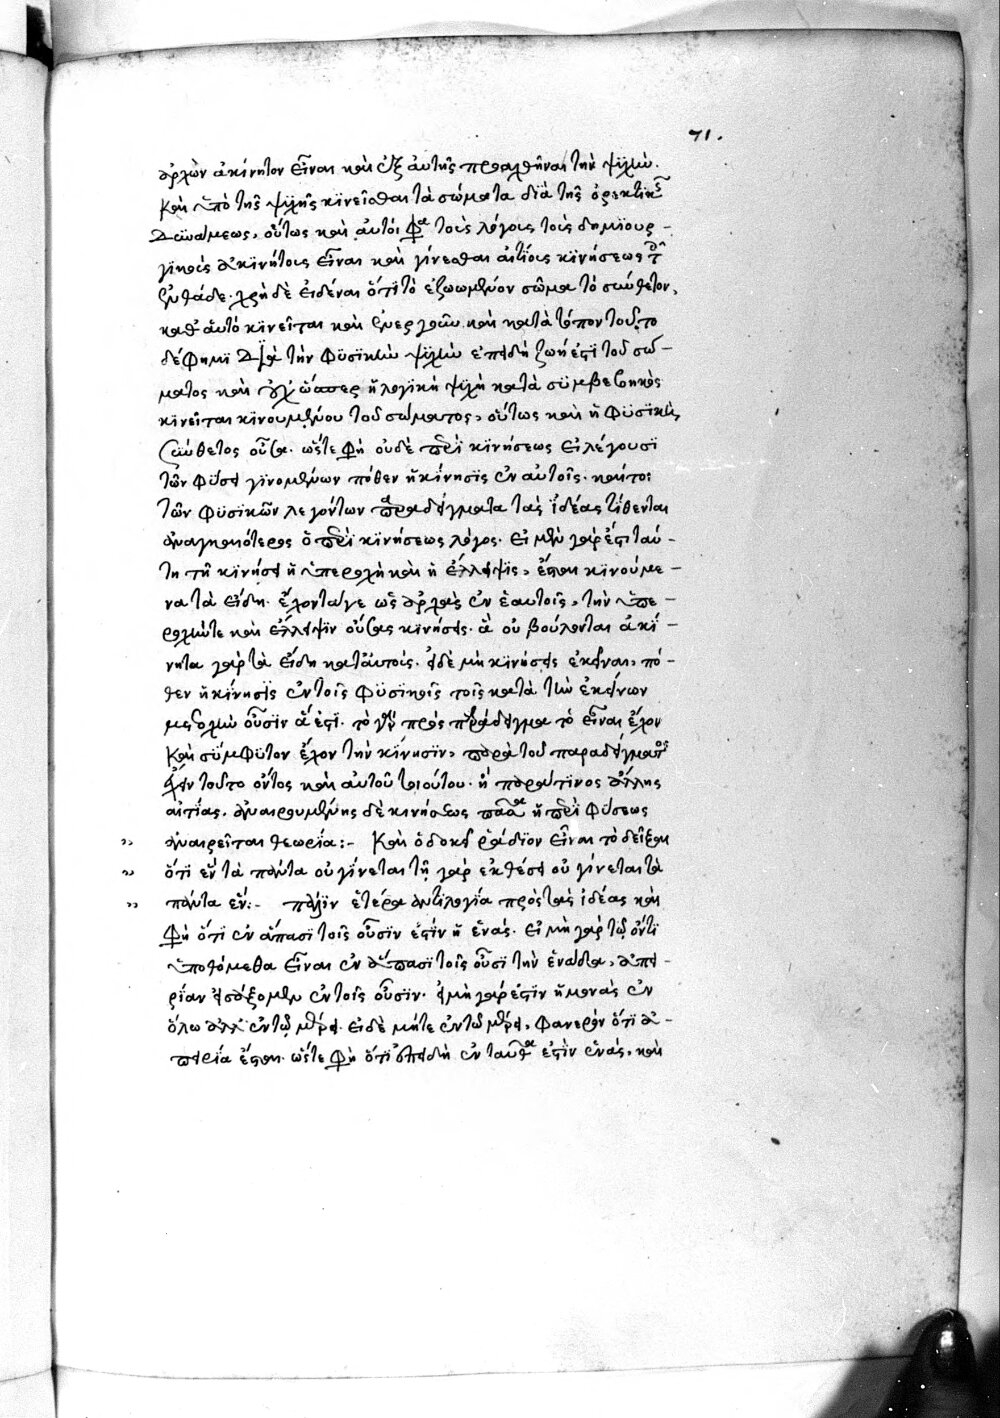 71.
ἀρχὴν ἀκίνητον εἶναι καὶ ἐξ αὐτῆς προελθῆναι τὴν ψϋχήν.
καὶ ὑπὸ τῆς ψϋχῆς κϊνεῖσθαι τὰ σώματα διὰ τῆς ὀρεκτικῆς
δυνάμεως, οὕτως καὶ αὐτοί φασι τοὺς λόγους τοὺς δημϊουρ-
γϊκοὺς ἀκϊνήτους εἶναι καὶ γίνεσθαι αἰτίους κϊνήσεως τοῖς
ἐνθάδε. χρὴ δὲ εἰδέναι ὅτϊ τὸ ἐζωωμένον σῶμα τὸ σύνθετον,
καθ' αὑτὸ κϊνεῖται καὶ ἐνεργοῦν καὶ κατὰ τόπον τοῦτο
δέ φημϊ διὰ τὴν φϋσϊκὴν ψϋχὴν ἐπειδὴ ζωή ἐστϊ τοῦ σώ-
ματος καὶ οὐχ ὥσπερ ἡ λογϊκὴ ψϋχὴ κατὰ σϋμβεβηκὸς
κϊνεῖται κϊνουμένου τοῦ σώματος, οὕτως καὶ ἡ φϋσϊκὴ,
σύνθετος οὖσα. ὥστε φησὶ οὐδὲ περὶ κϊνήσεως εἰ λέγουσϊ
τῶν φύσει γϊνομένων πόθεν ἡ κίνησϊς ἐν αὐτοῖς. καίτοι
τῶν φϋσϊκῶν λεγόντων παραδείγματα τὰς ἰδέας τίθενται
ἀναγκαιότερος ὁ περὶ κϊνήσεως λόγος. εἰ μὲν γάρ ἐστι ταύ-
τη τῇ κϊνήσει ἡ ὑπεροχὴ καὶ ἡ ἔλλειψϊς, ἔσται κϊνούμε-
να τὰ εἴδη. ἔχοντά γε ὡς ἀρχὰς ἐν ἑαυτοῖς, τὴν ὑπε-
ροχήν τε καὶ ἔλλειψϊν οὔσας κϊνήσεις. ἃ οὐ βούλονται ἀκί-
νητα γὰρ τὰ εἴδη κατ' αὐτούς. εἰ δὲ μὴ κϊνήσεις ἐκεῖναι, πό-
θεν ἡ κίνησϊς ἐν τοῖς φϋσϊκοῖς τοῖς κατὰ τὴν ἐκείνων
μετοχὴν οὖσϊν ἅ ἐστι. τὸ γὰρ πρὸς παράδειγμα τὸ εἶναι ἔχον
καὶ σϋμφϋτον ἔχον τὴν κίνησϊν, παρὰ τοῦ παραδείγματος
ἂν τοῦτο ὄντος καὶ αὐτοῦ τοιούτου. ἢ παρά τϊνος ἄλλης
αἰτίας. ἀναιρουμένης δὲ κϊνήσεως πᾶσα ἡ περὶ φύσεως
» ἀναιρεῖται θεωρία:- Καὶ ὃ δοκεῖ ῥάδϊον εἶναι τὸ δεῖξαι
» ὅτϊ ἓν τὰ πάντα οὐ γίνεται τῇ γὰρ ἐκθέσει οὐ γίνεται τὰ
» πάντα ἕν:- πάλϊν ἑτέρα ἀντϊλογία πρὸς τὰς ἰδέας καὶ
φησὶ ὅτϊ ἐν ἅπασϊ τοῖς οὖσϊν ἐστὶν ἡ ἑνάς. εἰ μὴ γὰρ τῷ ὄντϊ
ὑποθόμεθα εἶναι ἐν ἅπασϊ τοῖς οὖσϊ τὴν ἑνάδα, ἀπει-
ρίαν εἰσάξομεν ἐν τοῖς οὖσϊν. εἰ μὴ γάρ ἐστϊν ἡ μονὰς ἐν
ὅλω ἀλλ' ἐν τῷ μέρει. εἰ δὲ μήτε ἐν τῷ μέρει, φανερὸν ὅτϊ ἀ-
πειρία ἔσται. ὥστε φησὶ ὅτϊ ἐπειδὴ ἐν ταῦθα ἐστὶν ἑνάς, καὶ